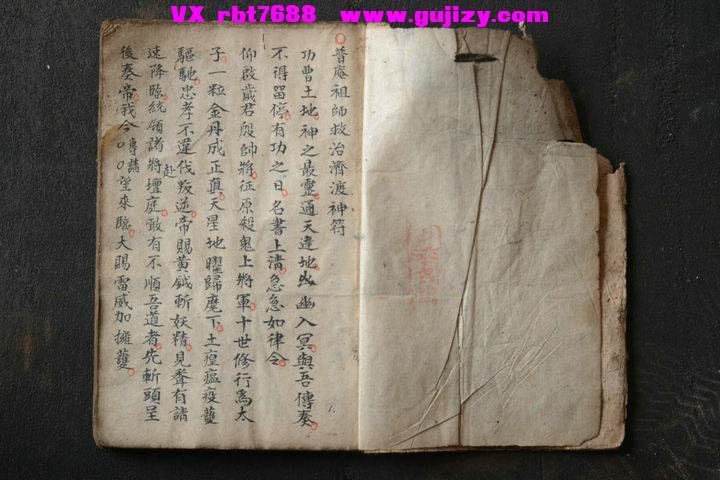 VX rbt7688 www.gujizy.com
普庵祖師救治濟渡神符
功曹土地神之最靈通天達地出幽入冥與吾傳奏
不得留停有功之日名書上清急急如律令
仰啟歲君殷帥將征原殺鬼上將軍十世修行為太
子一粒金丹成正真天星地曜歸麾下土瘟瘟疫獲
驅馳忠孝不違伐叛逆帝賜黃鉞斬妖精見聲有請
速降臨統領諸將赴壇庭敢有不順吾道者先斬頭呈
後奏帝我今專請〇〇望來臨大賜雷威加擁護